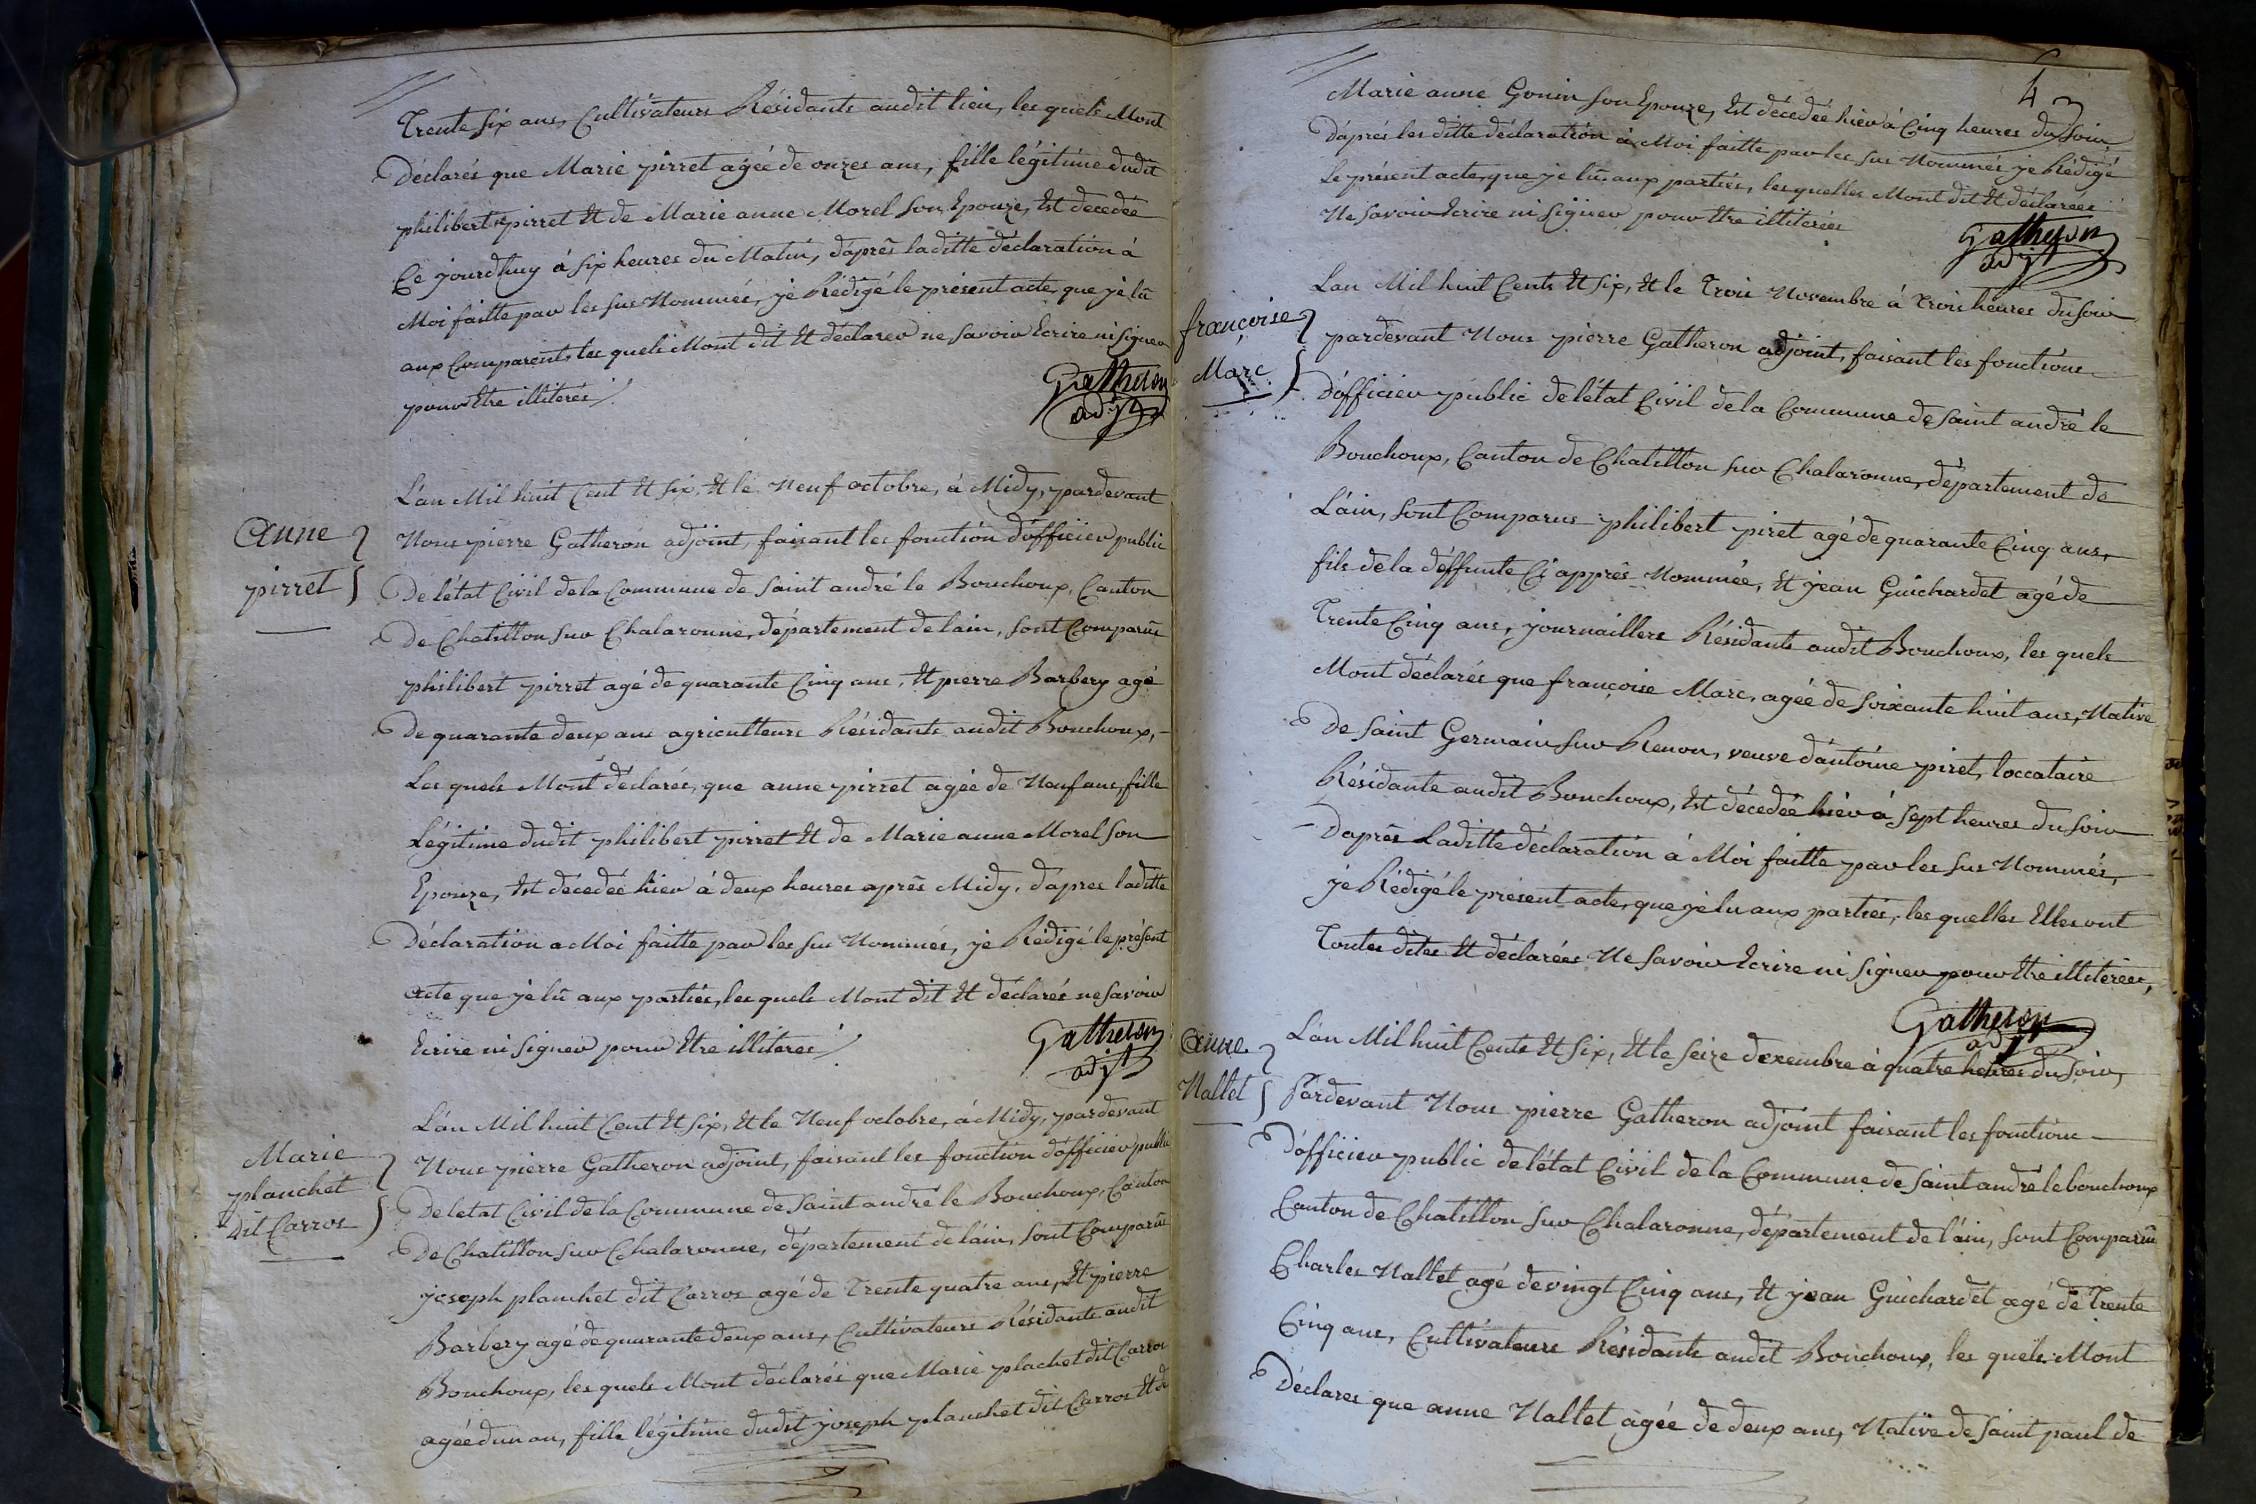 Trente six ans, Cultivateurs Résidants audit lieu, les quels Mont
Déclarés que Marie pirret agée de onzes ans, fille légitime dudit
philibert pirret Et de Marie anne Morel Son Epouze, Est decedée
Ce jourdhuy à six heures du Matin, dáprês laditte déclaration à
Moi faitte par les sus Nommés, je Rédigé le présent acte, que je lû
aux Comparents les quels Mont dit Et déclarer ne savoir Ecrire ni signer
pour Etre illiterés /.
Gatheron
adjt
Anne
pirret
L'an Mil huit Cent Et six, Et le Neuf octobre, à Midy, pardevant
Nous pierre Gatheron adjoint, faisant les fonction dófficier public
De létat Civil de la Commune de Saint andré le Bouchoux, Canton
De Chatillon sur Chalaronne, département de lain, sont Comparûs
philibert pirret agé de quarante Cinq ans, Et pierre Barbery agé
De quarante deux ans agriculteurs Résidants audit Bouchoux,
Les quels Mont déclarés, que anne pirret agée de Neuf ans, fille
Légitime dudit philibert pirret Et de Marie anne Morel Son
Epouze, Est décedée hier à deux heures aprês Midy, dápres laditte
Déclaration a Moi faitte par les sus Nommés, je Rédigé le présent
acte que je lû aux parties, les quels Mont dit Et déclarés ne savoir
Ecrire ni signer pour Etre illiterés /.
Gatheron
adjt
Marie
planchet
dit Carros
L'an Mil huit Cent Et six, Et le Neuf octobre, à Midy, pardevant
Nous pierre Gatheron adjoint, faisant les fonction dófficier public
De letat Civil de la Commune de Saint andré le Bouchoux, Canton
De Chatillon sur Chalaronne, département de láin, sont Comparûs
joseph planchet dit Carros agé de Trente quatre ans, Et pierre
Barbery agé de quarante deux ans, Cultivateurs Résidants audit
Bouchoux, les quels Mont déclarés que Marie plachet dit Carros
agée dun an, fille légitime dudit joseph planchet dit Carros Et de
4
Marie anne Gonin son Epouze, Est décedée hier à Cinq heures du soir
Dáprés les ditte déclaration à Moi faitte par les sus Nommés je Rédigé
Le présent acte, que je lû aux parties, les quelles Mont dit Et déclarées
Ne savoir Ecrire ni signer pour Etre illiterées
Gatheron
adjt
françoise
Marc
Lan Mil huit Cents Et six, Et le Trois Novembre à trois heures du soir
pardevant Nous pierre Gatheron adjoint, faisant les fonctions
Dófficier public de létat Civil de la Commune de Saint andré le
Bouchoux, Canton de Chatillon sur Chalaronne, département de
Láin, sont Comparus philibert piret agé de quarante Cinq ans,
fils de la déffunte Ci apprês Nommée, Et jean Guichardet agé de
Trente Cinq ans, journailliers Résidants audit Bouchoux, les quels
Mont déclarés que françoise Marc, agée de soixante huit ans, Native
De Saint Germain sur Renon, veuve dántoine piret, loccataire
Résidante audit Bouchoux, Est décedée hièr à sept heures du soir
Daprês Laditte déclaration à Moi faitte par les sus Nommés,
je Rédigé le présent acte, que je lu aux parties, les quelles Elles ont
Toutes dites Et déclarées Ne savoir Ecrire ni signer pour Etre illiterées,
Gatheron
adjt
Anne
Nallet
L'an Mil huit Cents Et six, Et le seize dexembre à quatre heures du soir,
Pardevant Nous pierre Gatheron adjoint faisant les fonctions
Dófficier public de létat Civil de la Commune de Saint andré le bouchoux
Canton de Chatillon sur Chalaronne, département de l'áin, sont Comparûs
Charles Nallet agé de vingt Cinq ans, Et jean Guichardet agé de Trente
Cinq ans, Cultivateurs Résidants audit Bouchoux, les quels Mont
Déclares que anne Nallet agée de deux ans, Native de Saint paul de